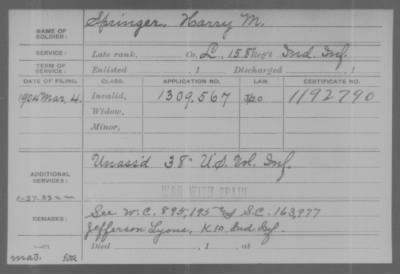 NAME OF SOLDIER: Springer, Harry M.
SERVICE: Late rank, Co. L, 158 Reg't Ind. Inf.
TERM OF SERVICE: Enlisted , 1 Discharged , 1
DATE OF FILING. CLASS. APPLICATION NO. LAW. CERTIFICATE NO.
1904 Mar. 4. Invalid, 1309,567 1192790
Widow,
Minor,
ADDITIONAL SERVICES: Unass'd 38" U.S. Vol. Inf.
WAR WITH SPAIN
REMARKS: See W.C. 895,195 & S.C. 163,977
Jefferson Lyons, K 10, Ind. Inf.
Died , 1 , at